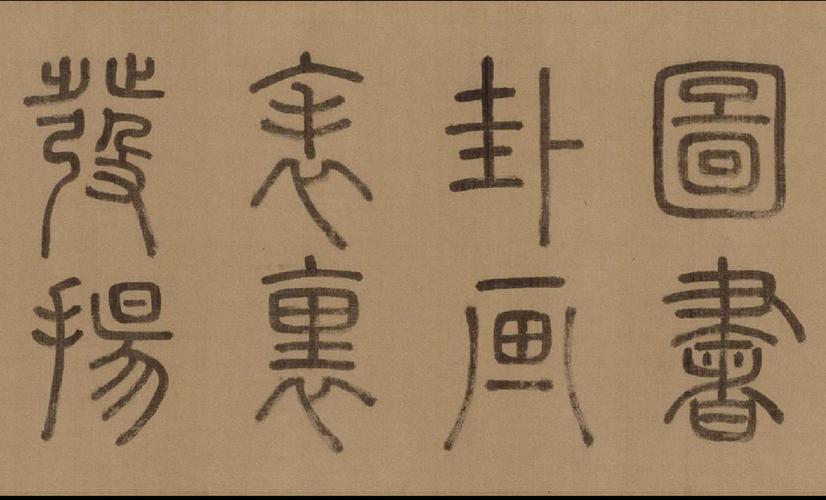 圖書
卦画
表裏
發揚